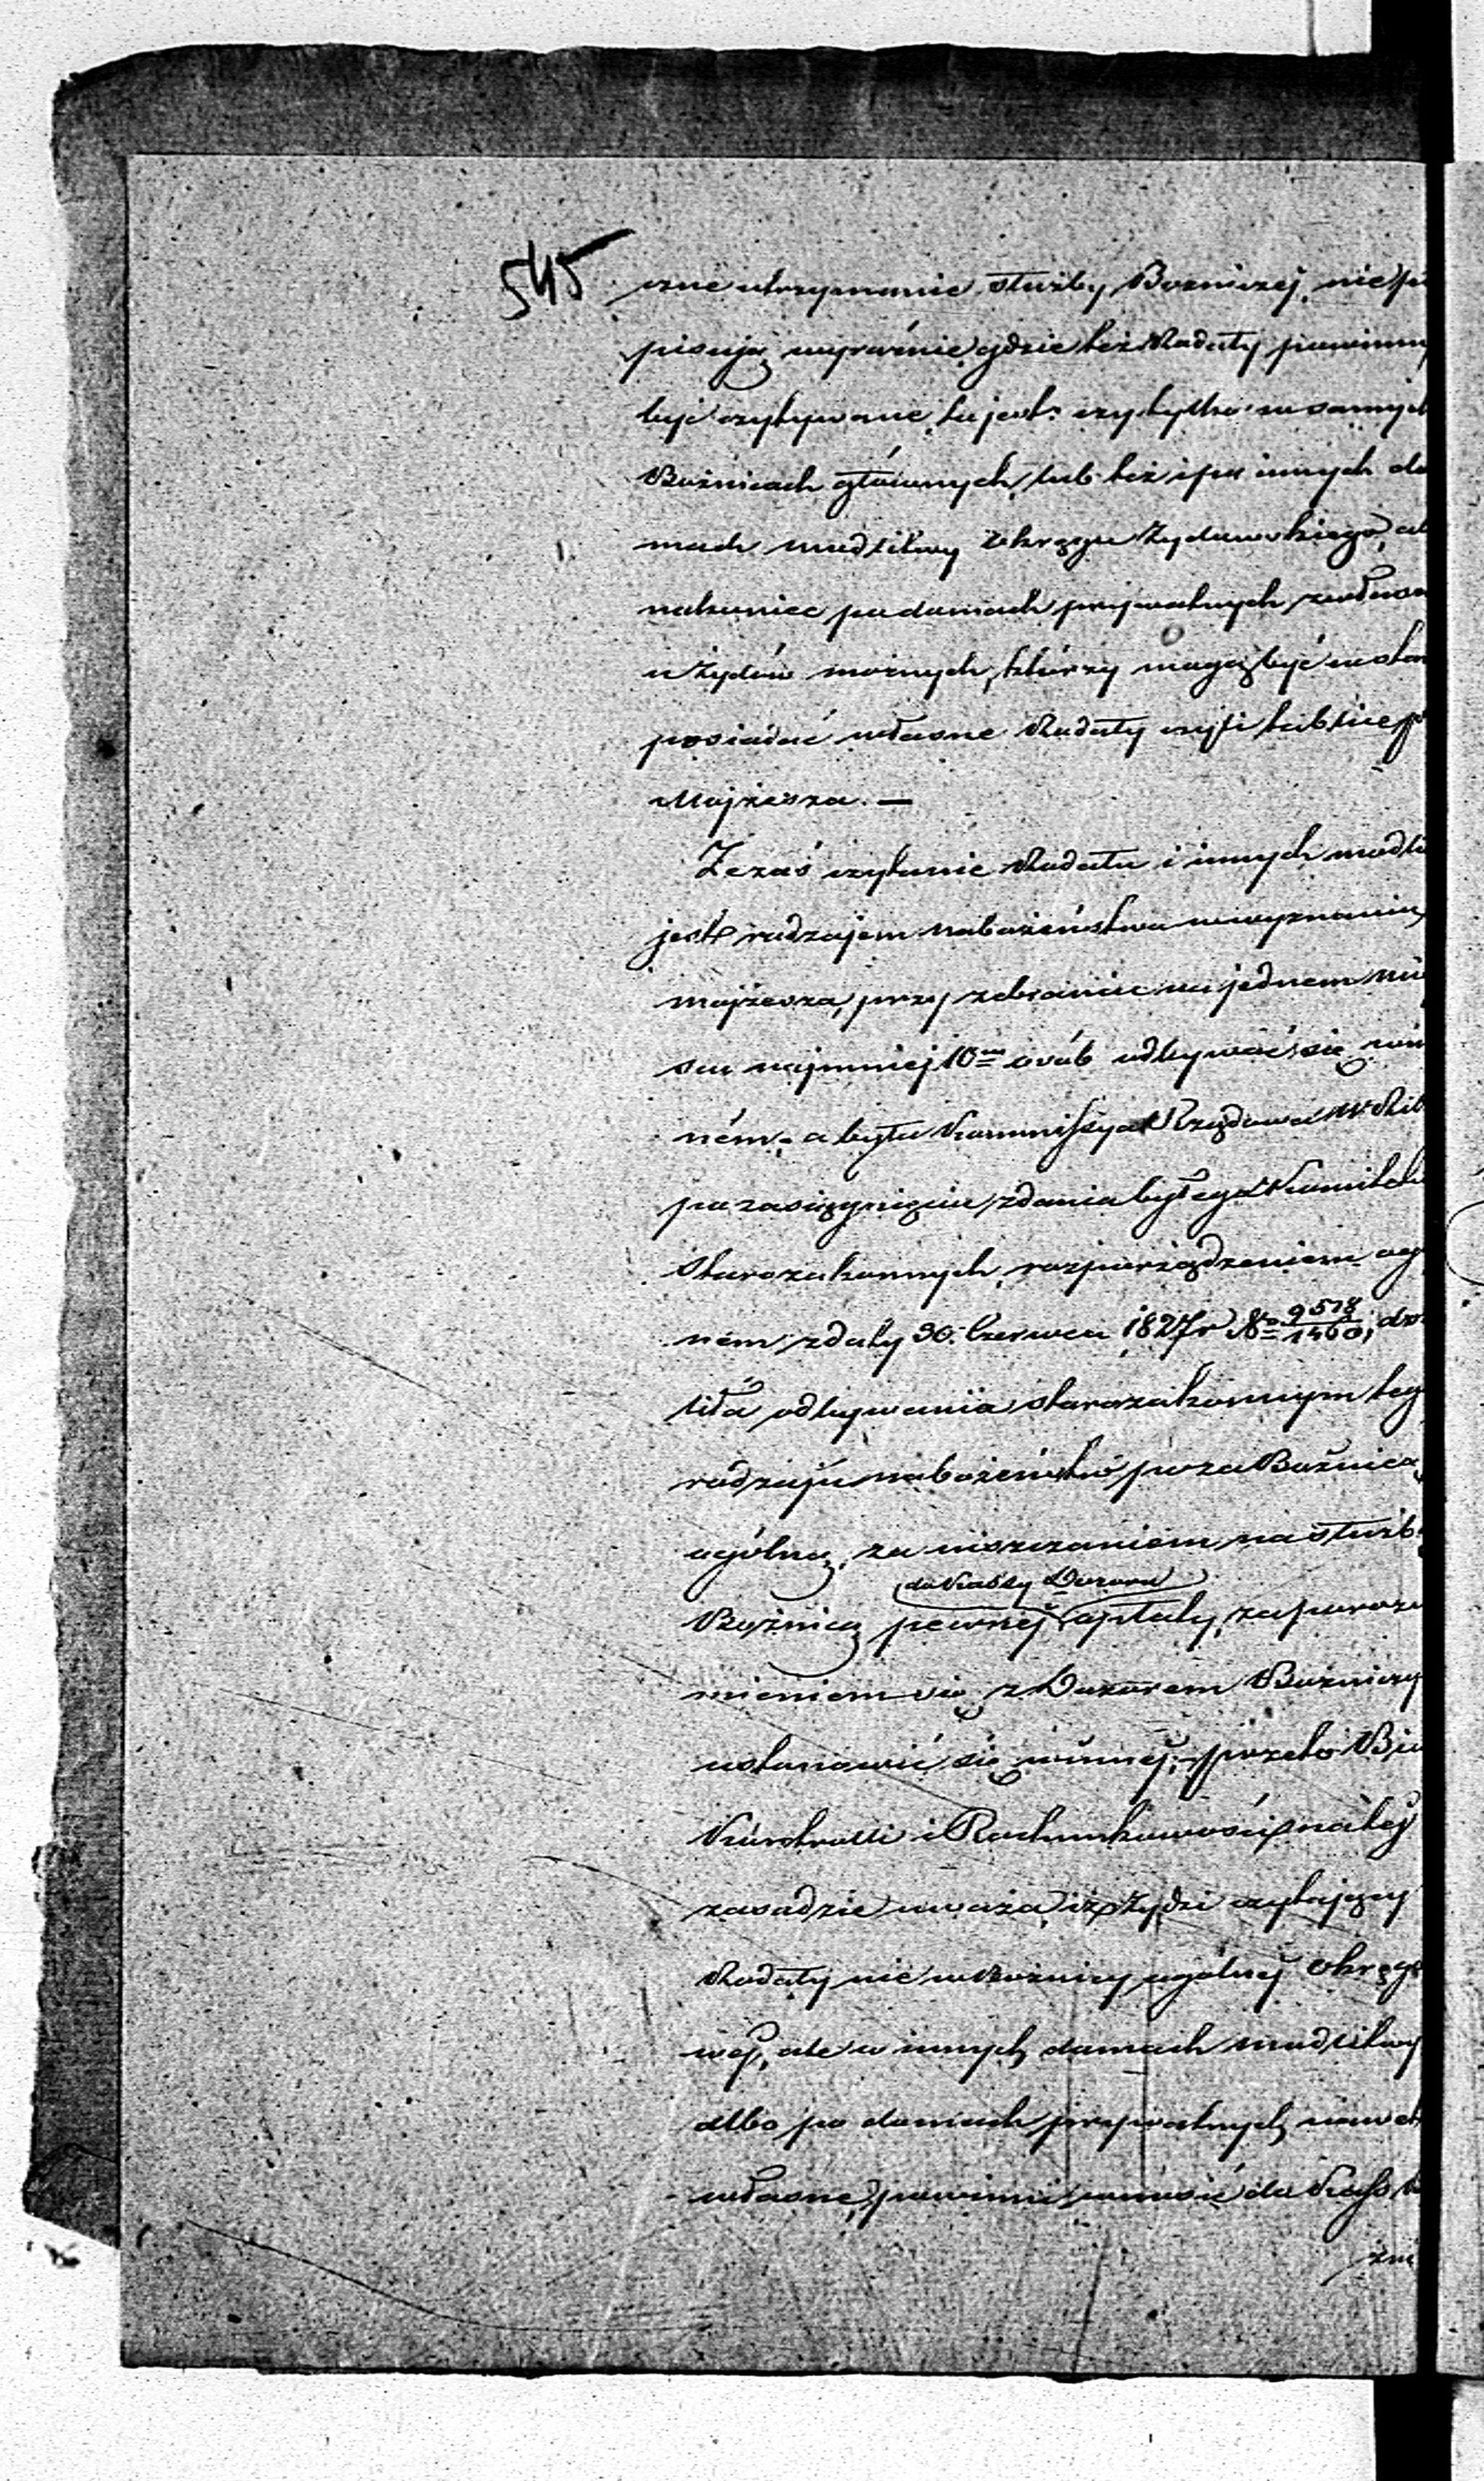 545
czne utrzymanie służby Bozniczej, nie
pisują wyraźnie gdzie też Rodały powinny
być czytywane, to jest: czy tylko w samych
Bożnicach głównych, lub też i po innych do
mach modlitwy Okręgu Żydowskiego, al
nakoniec po domach prywatnych zwłasz
u Żydów możnych, którzy mogą być w stan
posiadać własne Rodały czyli tablice
Mojżesza. —
Że zaś czytanie Rodału i innych modli
jest rodzajem nabożeństwa w wyznaniu
mojżesza, przy zebraniu na jednem miey
scu najmniej 10ciu osób odbywać się win
ném; a była Kommissya Rządowa W. R. i
po zasiągnięciu zdania byłego Komitetu
Starozakonnych, rozporządzeniem og
nem z daty 30. Czerwca 1827r No 9518/1460, do
liła odbywania starozakonnym teg
rodzaju nabożeństw poza Bożnicą
ogólną, za uiszczaniem na służb
do Kassy Dozoru
Bożnicą pewnej opłaty, za porozu
mieniem się z Dozorem Bożniczy
ustanowić się winnej; przeto Biu
Kontrolli i Rachunkowości na tej
zasadzie uważa, iż Żydzi czytający
Rodały nie w Bożnicy ogólnej Okręgo
wej, ale w innych domach modlitwy
albo po domach prywatnych nawet
własne, powinni wnosić do Kass